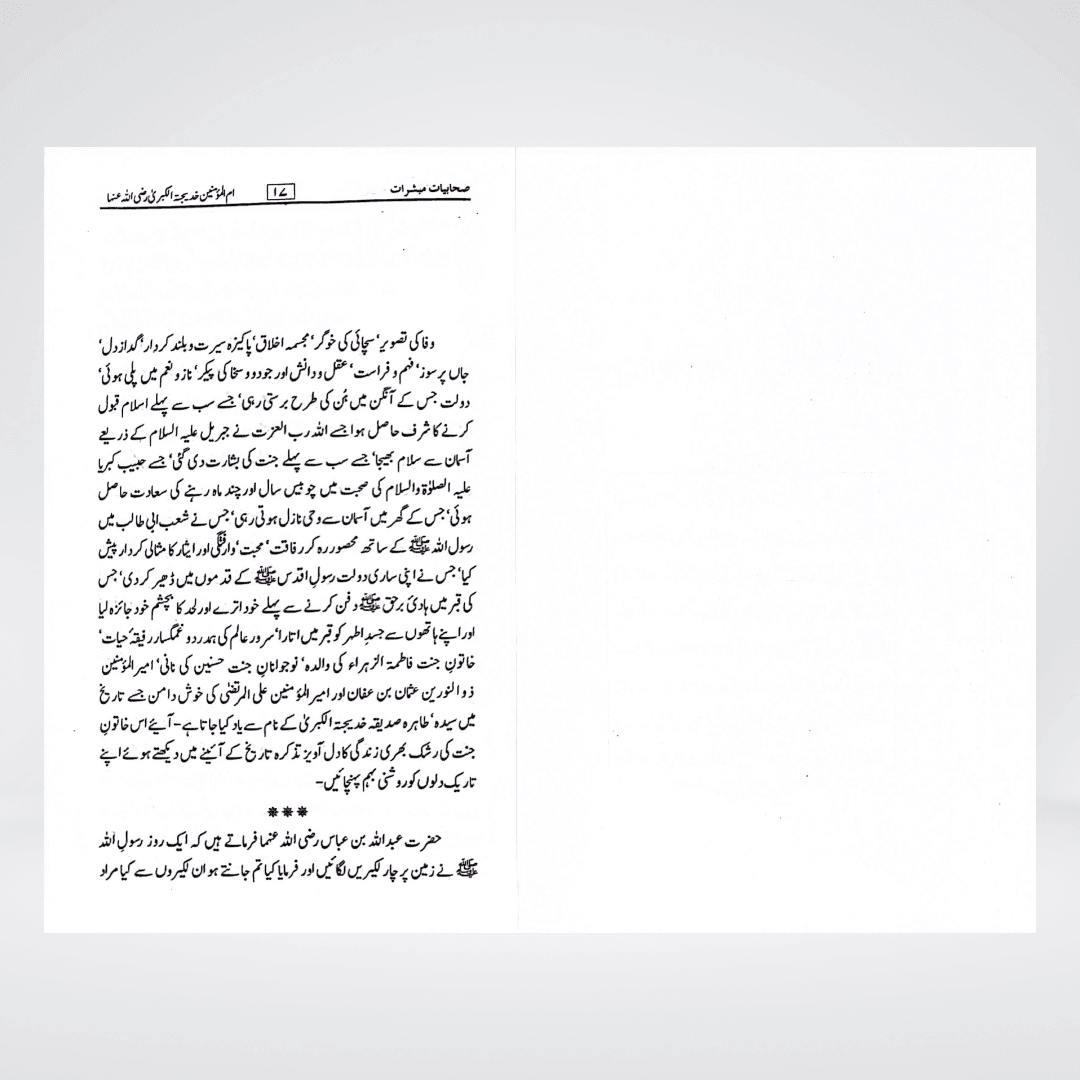 صحابیات مبشرات ۱۷ ام المؤمنین خدیجۃ الکبریٰ رضی اللہ عنہا
وفا کی تصویر‘ سچائی کی خوگر‘ مجسمہ اخلاق‘ پاکیزہ سیرت و بلند کردار‘ گداز دل‘
جاں پر سوز‘ فہم و فراست‘ عقل و دانش اور جود و سخا کی پیکر‘ ناز و نعم میں پلی ہوئی‘
دولت جس کے آنگن میں ہُن کی طرح برستی رہی‘ جسے سب سے پہلے اسلام قبول
کرنے کا شرف حاصل ہوا جسے اللہ رب العزت نے جبریل علیہ السلام کے ذریعے
آسمان سے سلام بھیجا‘ جسے سب سے پہلے جنت کی بشارت دی گئی‘ جسے حبیب کبریا
علیہ الصلوٰۃ والسلام کی صحبت میں چوبیس سال اور چند ماہ رہنے کی سعادت حاصل
ہوئی‘ جس کے گھر میں آسمان سے وحی نازل ہوتی رہی‘ جس نے شعب ابی طالب میں
رسول اللہ ﷺ کے ساتھ محصور رہ کر رفاقت‘ محبت‘ وارفتگی اور ایثار کا مثالی کردار پیش
کیا‘ جس نے اپنی ساری دولت رسولِ اقدس ﷺ کے قدموں میں ڈھیر کر دی‘ جس
کی قبر میں ہادیٔ برحق ﷺ دفن کرنے سے پہلے خود اترے اور لحد کا بچشم خود جائزہ لیا
اور اپنے ہاتھوں سے جسدِ اطہر کو قبر میں اتارا‘ سرور عالم کی ہمدرد و غمگسار رفیقۂ حیات‘
خاتونِ جنت فاطمۃ الزہراء کی والدہ‘ نوجوانانِ جنت حسنین کی نانی‘ امیر المؤمنین
ذوالنورین عثمان بن عفان اور امیر المؤمنین علی المرتضٰی کی خوش دامن جسے تاریخ
میں سیدہ‘ طاہرہ صدیقہ خدیجۃ الکبریٰ کے نام سے یاد کیا جاتا ہے- آیئے اس خاتونِ
جنت کی رشک بھری زندگی کا دل آویز تذکرہ تاریخ کے آئینے میں دیکھتے ہوئے اپنے
تاریک دلوں کو روشنی بہم پہنچائیں-
***
حضرت عبداللہ بن عباس رضی اللہ عنہما فرماتے ہیں کہ ایک روز رسولِ اللہ
ﷺ نے زمین پر چار لکیریں لگائیں اور فرمایا کیا تم جانتے ہو ان لکیروں سے کیا مراد